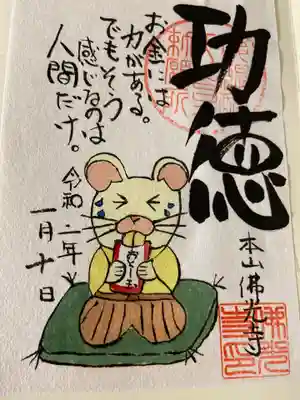 功徳
お金には
力がある。
でもそう
感じるのは
人間だけ。
令和二年
一月十日
本山佛光寺